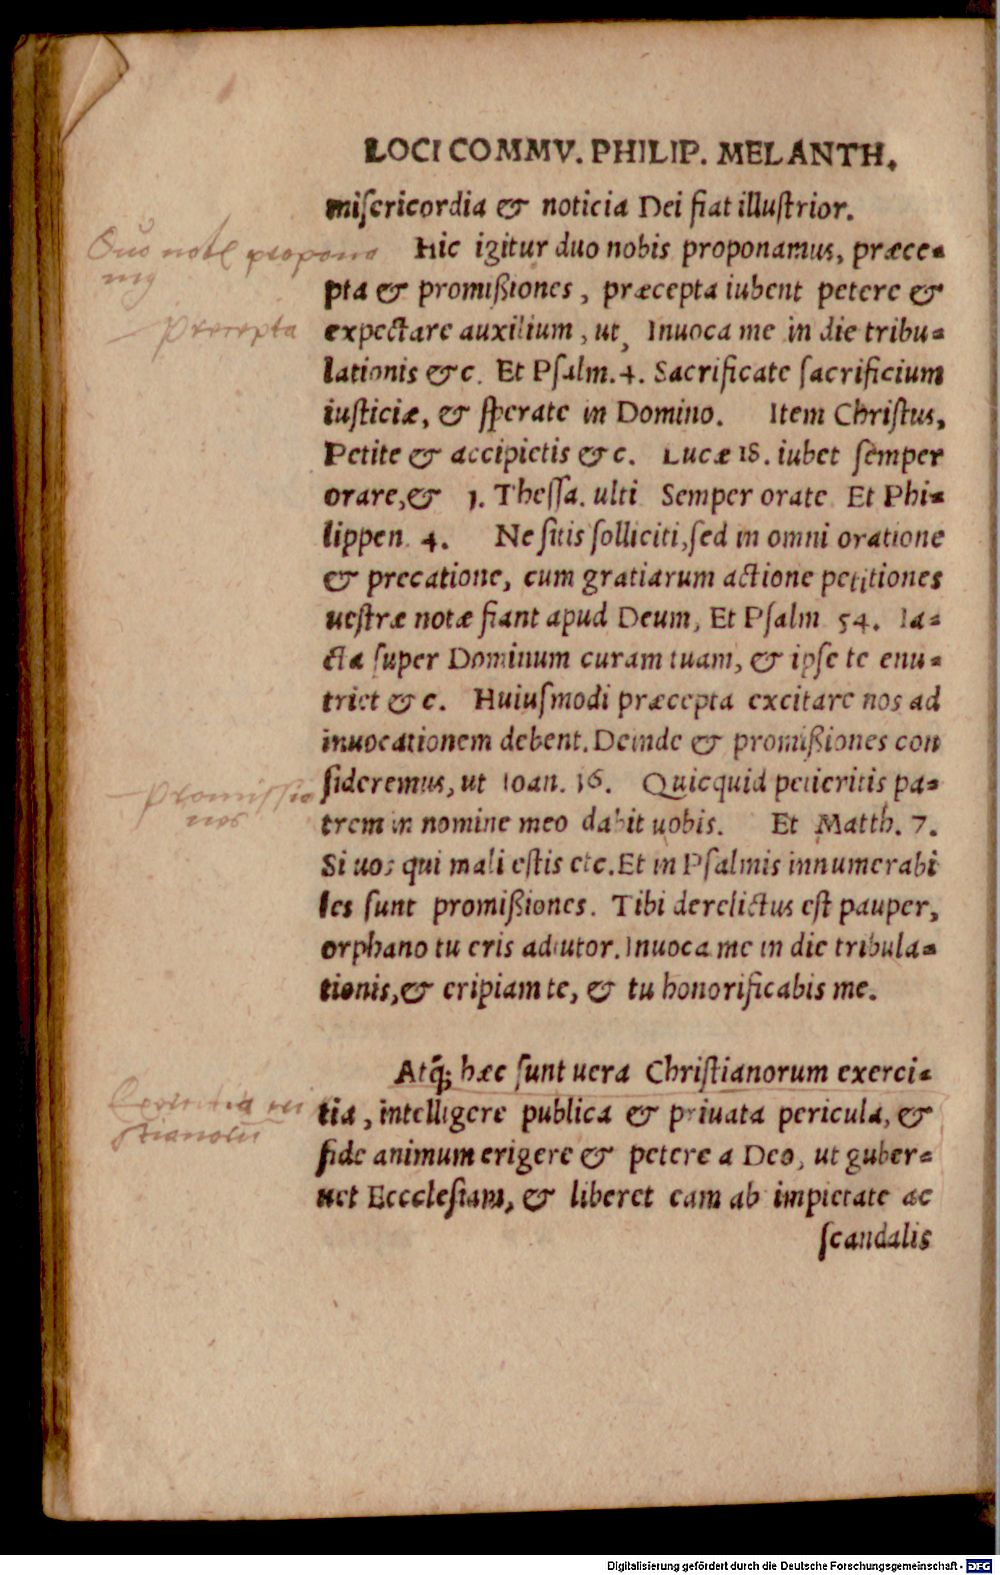 LOCI COMMV. PHILIP. MELANTH.
miſericordia & noticia Dei fiat illuſtrior.
Hic igitur duo nobis proponamus, præce-
pta & promißiones, præcepta iubent petere &
expectare auxilium, ut, Inuoca me in die tribu-
lationis &c. Et Pſalm. 4. Sacrificate ſacrificium
iuſticiæ, & ſperate in Domino. Item Chriſtus,
Petite & accipietis &c. Lucæ 18. iubet ſemper
orare, & 1. Theſſa. ulti Semper orate Et Phi-
lippen. 4. Ne ſitis ſolliciti, ſed in omni oratione
& precatione, cum gratiarum actione petitiones
ueſtræ notæ fiant apud Deum, Et Pſalm 54. Ia-
cta ſuper Dominum curam tuam, & ipſe te enu-
triet &c. Huiuſmodi præcepta excitare nos ad
inuocationem debent. Deinde & promißiones con
ſideremus, ut Ioan. 16. Quicquid petieritis pa-
trem in nomine meo dabit uobis. Et Matth. 7.
Si uos qui mali eſtis etc. Et in Pſalmis innumerabi
les ſunt promißiones. Tibi derelictus eſt pauper,
orphano tu eris adiutor. Inuoca me in die tribula-
tionis, & eripiam te, & tu honorificabis me.
Atq́; hæc ſunt uera Chriſtianorum exerci-
tia, intelligere publica & priuata pericula, &
fide animum erigere & petere a Deo, ut guber-
net Eccclesiam, & liberet eam ab impietate ac
ſcandalis
Duo propono
Precepta
Promissio
nes
Digitalisierung gefördert durch die Deutsche Forschungsgemeinschaft - DFG